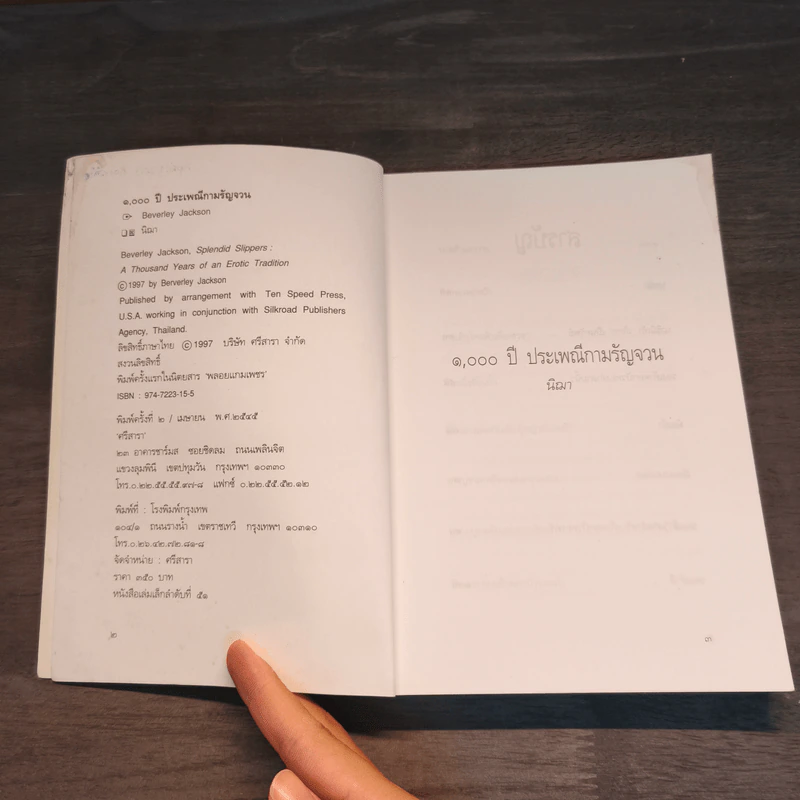 ๑,๐๐๐ ปี ประเพณีกามรัญจวน
Beverley Jackson
นิฌา
Beverley Jackson, Splendid Slippers :
A Thousand Years of an Erotic Tradition
©1997 by Berverley Jackson
Published by arrangement with Ten Speed Press,
U.S.A. working in conjunction with Silkroad Publishers
Agency, Thailand.
ลิขสิทธิ์ภาษาไทย ©1997 บริษัท ศรีสารา จำกัด
สงวนลิขสิทธิ์
พิมพ์ครั้งแรกในนิตยสาร 'พลอยแกมเพชร'
ISBN : 974-7223-15-5
พิมพ์ครั้งที่ ๒ / เมษายน พ.ศ.๒๕๔๕
'ศรีสารา'
๒๓ อาคารชาร์มส ซอยชิดลม ถนนเพลินจิต
แขวงลุมพินี เขตปทุมวัน กรุงเทพฯ ๑๐๓๓๐
โทร.๐.๒๒.๕๕.๕๕.๙๗-๘ แฟกซ์ ๐.๒๒.๕๕.๕๒.๑๒
พิมพ์ที่ : โรงพิมพ์กรุงเทพ
๑๐๔/๑ ถนนรางน้ำ เขตราชเทวี กรุงเทพฯ ๑๐๓๑๐
โทร.๐.๒๖.๔๒.๗๒.๘๑-๘
จัดจำหน่าย : ศรีสารา
ราคา ๓๕๐ บาท
หนังสือเล่มเล็กลำดับที่ ๕๑
๒
๑,๐๐๐ ปี ประเพณีกามรัญจวน
นิฌา
๓